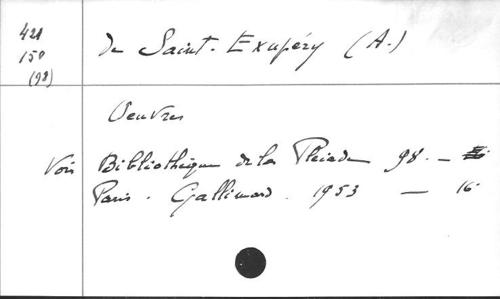 421
150
(98)
de Saint-Exupéry (A.)
Oeuvres
Voir Bibliothèque de la Pleiade 98. —
Paris. Gallimard. 1953 — 16